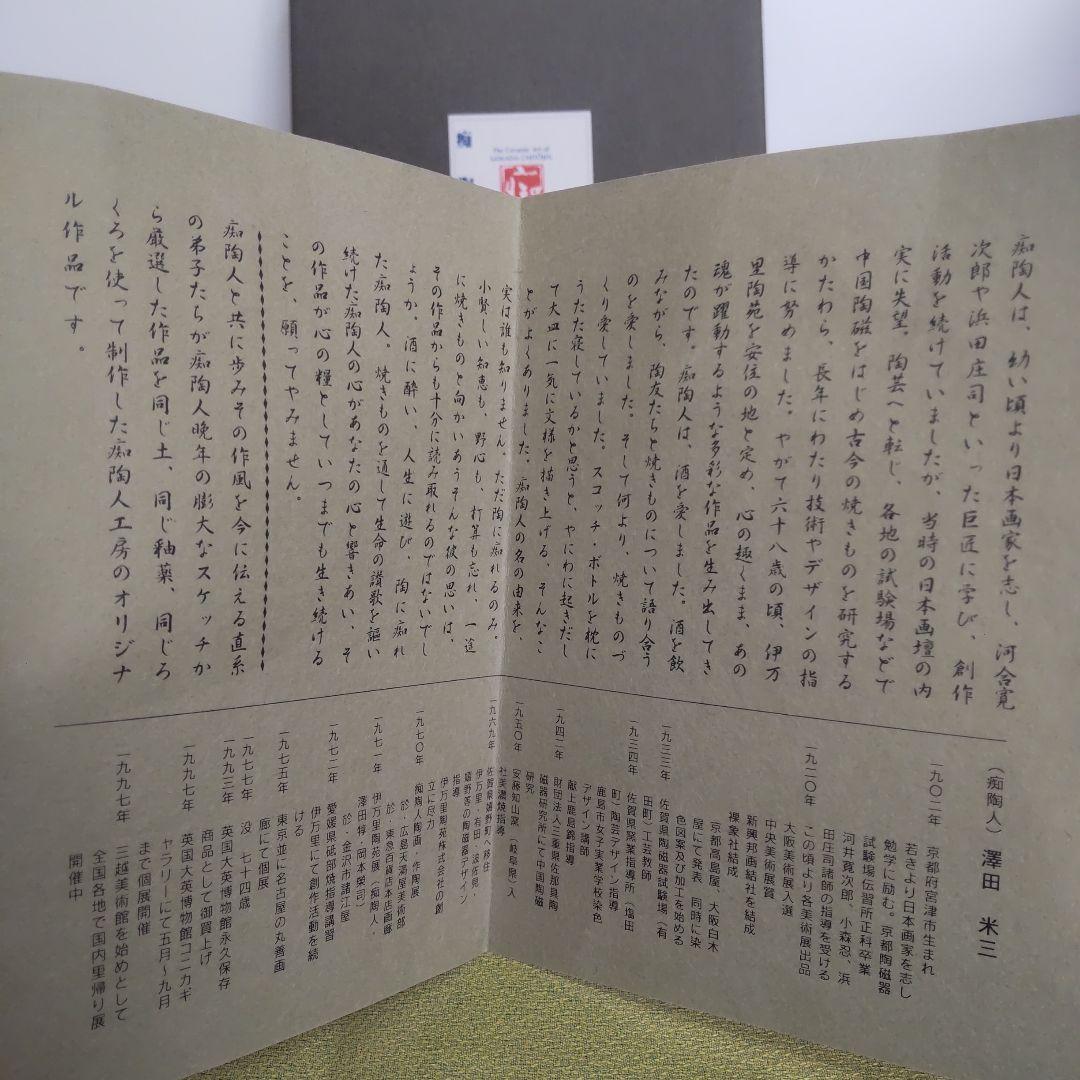 痴
The Ceramic Art of
SAWADA CHITOJIN
痴陶人は、幼い頃より日本画家を志し、河合寛
次郎や浜田庄司といった巨匠に学び、創作
活動を続けていましたが、当時の日本画壇の内
実に失望。陶芸へと転じ、各地の試験場などで
中国陶磁をはじめ古今の焼きものを研究する
かたわら、長年にわたり技術やデザインの指
導に努めました。やがて六十八歳の頃、伊万
里陶苑を安住の地と定め、心の趣くまま、あの
魂が躍動するような多彩な作品を生み出してき
たのです。痴陶人は、酒を愛しました。酒を飲
みながら、陶友たちと焼きものについて語り合う
のを愛しました。そして何より、焼きものづ
くり愛していました。スコッチ・ボトルを枕に
うたた寝しているかと思うと、やにわに起きだし
て大皿に一気に文様を描き上げる、そんなこ
とがよくありました。痴陶人の名の由来を、
実は誰も知りません。ただ陶に痴れるのみ。
小賢しい知恵も、野心も、打算も忘れ、一途
に焼きものと向かいあうそんな彼の思いは、
その作品からも十分に読み取れるのではないでし
ょうか。酒に酔い、人生に遊び、陶に痴れ
た痴陶人。焼きものを通して生命の讃歌を謳い
続けた痴陶人の心があなたの心と響きあい、そ
の作品が心の糧としていつまでも生き続ける
ことを、願ってやみません。
痴陶人と共に歩みその作風を今に伝える直系
の弟子たちが痴陶人晩年の膨大なスケッチか
ら厳選した作品を同じ土、同じ釉薬、同じろ
くろを使って制作した痴陶人工房のオリジナ
ル作品です。
（痴陶人）澤田 米三
一九〇二年 京都府宮津市生まれ
若きより日本画家を志し
勉学に励む。京都陶磁器
試験場伝習所正科卒業
河井寛次郎、小森忍、浜
田庄司諸師の指導を受ける
一九二〇年 この頃より各美術展出品
大阪美術展入選
中央美術展賞
新興邦画結社を結成
裸象社結成
京都高島屋、大阪白木
屋にて発表 同時に染
色図案及び加工を始める
一九三三年 佐賀県陶磁器試験場（有
田町）工芸教師
一九三四年 佐賀県窯業指導所（塩田
町）陶芸デザイン指導
鹿島市女子実業学校染色
デザイン講師
献上鹿島錦指導
一九四二年 財団法人三重県佐那具陶
磁器研究所にて中国陶磁
研究
一九五〇年 安藤知山窯（岐阜県）入
社美濃焼指導
一九六九年 佐賀県嬉野町へ移住
伊万里・有田・波佐見・
嬉野等の陶磁器デザイン
指導
伊万里陶苑株式会社の創
立に尽力
一九七〇年 痴陶人陶画・作陶展
於・広島天満屋美術部
於・東急百貨店本店画廊
一九七一年 伊万里陶苑展（痴陶人・
澤田惇・岡本榮司）
於・金沢市諸江屋
一九七二年 愛媛県砥部焼指導講習
伊万里にて創作活動を続
ける
一九七五年 東京並に名古屋の丸善画
廊にて個展
一九七七年 没 七十四歳
一九九三年 英国大英博物館永久保存
商品として御買上げ
一九九七年 英国大英博物館コニカギ
ャラリーにて五月～九月
まで個展開催
一九九七年 三越美術館を始めとして
全国各地で国内里帰り展
開催中